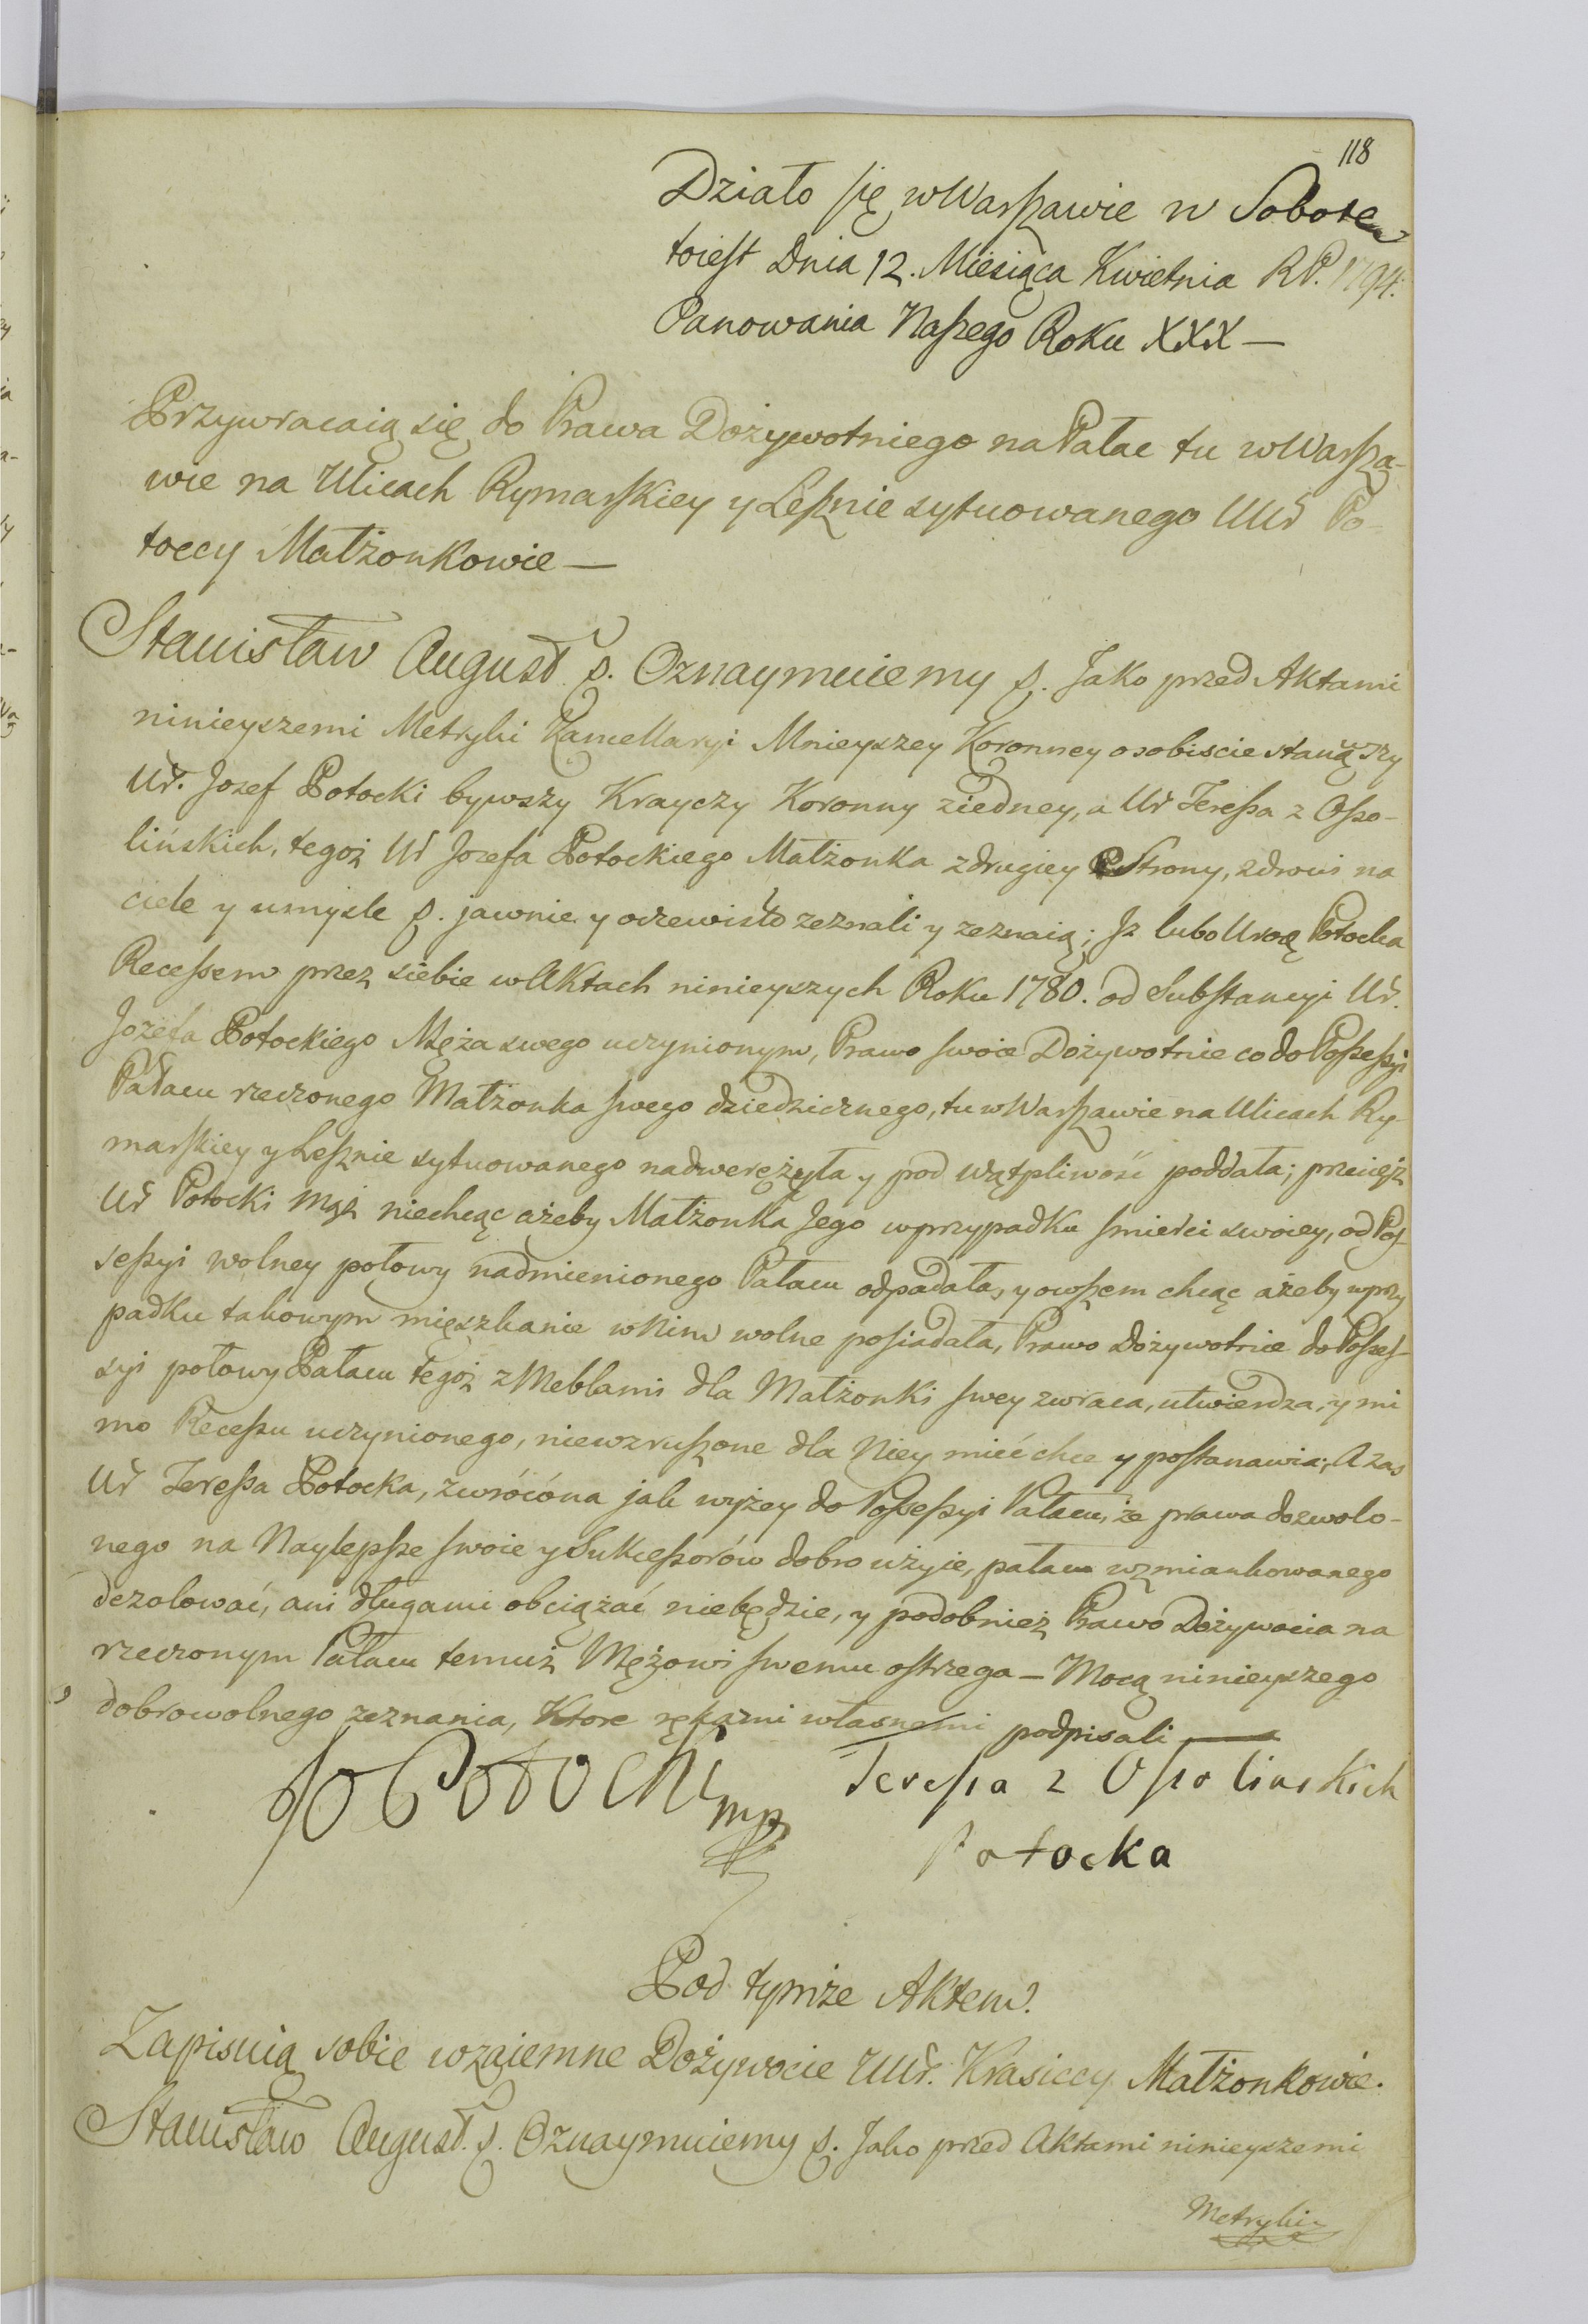 118
Działo się w Warszawie w Sobotę
toiest Dnia 12. Miesiąca Kwietnia R. P. 1794.
Panowania Naszego Roku XXX —
Przywracaią się do Prawa Dożywotniego na Pałac tu w Warsza-
wie na Ulicach Rymarskiey y Lesznie sytuowanego UUr Po-
toccy Małżonkowie —
Stanisław August p. Oznaymuiemy p. Jako przed Aktami
ninieyszemi Metryki Kancellaryi Mnieyszey Koronney osobiscie stanąwszy
Ur. Jozef Potocki bywszy Krayczy Koronny ziedney, a Ur Teressa z Osso-
lińskich, tegoż Ur Jozefa Potockiego Małżonka zdrugiey Strony, zdrowi na
ciele y umysle p. jawnie y oczewisto zeznali y zeznaią; Iz lubo Uroą Potocka
Recessem przez siebie w Aktach ninieyszych Roku 1780. od Substancyi Ur.
Jozefa Potockiego Męża swego uczynionym, Prawo swoie Dożywotnie co do Possessyi
Pałacu rzeczonego Małżonka swego dziedzicznego, tu w Warszawie na Ulicach Ry-
marskiey y Lesznie sytuowanego nadwerężyła y pod wątpliwość poddała; przecięż
Ur Potocki Mąż niechcąc ażeby Małżonka Jego wprzypadku smierci swoiey, od Pos-
sessyi wolney połowy nadmienionego Pałacu odpadała, y owszem chcąc ażeby wprzy
padku takowym mięszkanie w Nim wolne posiadała, Prawo Dożywotnie do Posses-
syi połowy Pałacu tegoż z Meblami dla Małżonki swey zwraca, utwierdza, y mi
mo Recessu uczynionego, niewzruszone dla Niey mieć chce y postanawia; A zas
Ur Teressa Potocka, zwrócóna jak wyżey do Possessyi Pałacu, że prawa dozwolo-
nego na Naylepsze swoie y Sukcessorów dobro użyie, pałacu wzmiankowanego
dezolować, ani długami obciążać niebędzie, y podobnież Prawo Dożywocia na
rzeczonym Pałacu temuż Mężowi swemu ostrzega — Mocą ninieyszego
dobrowolnego zeznania, Ktore rękami własnemi podpisali —
Jo Potocki mp
Teressa z Ossolinskich
Potocka
Pod tymże Aktem.
Zapisuią sobie wzaiemne Dożywocie UUr. Krasiccy Małżonkowie.
Stanisław August. p. Oznaymuiemy p. Jako przed Aktami ninieyszemi
Metryki